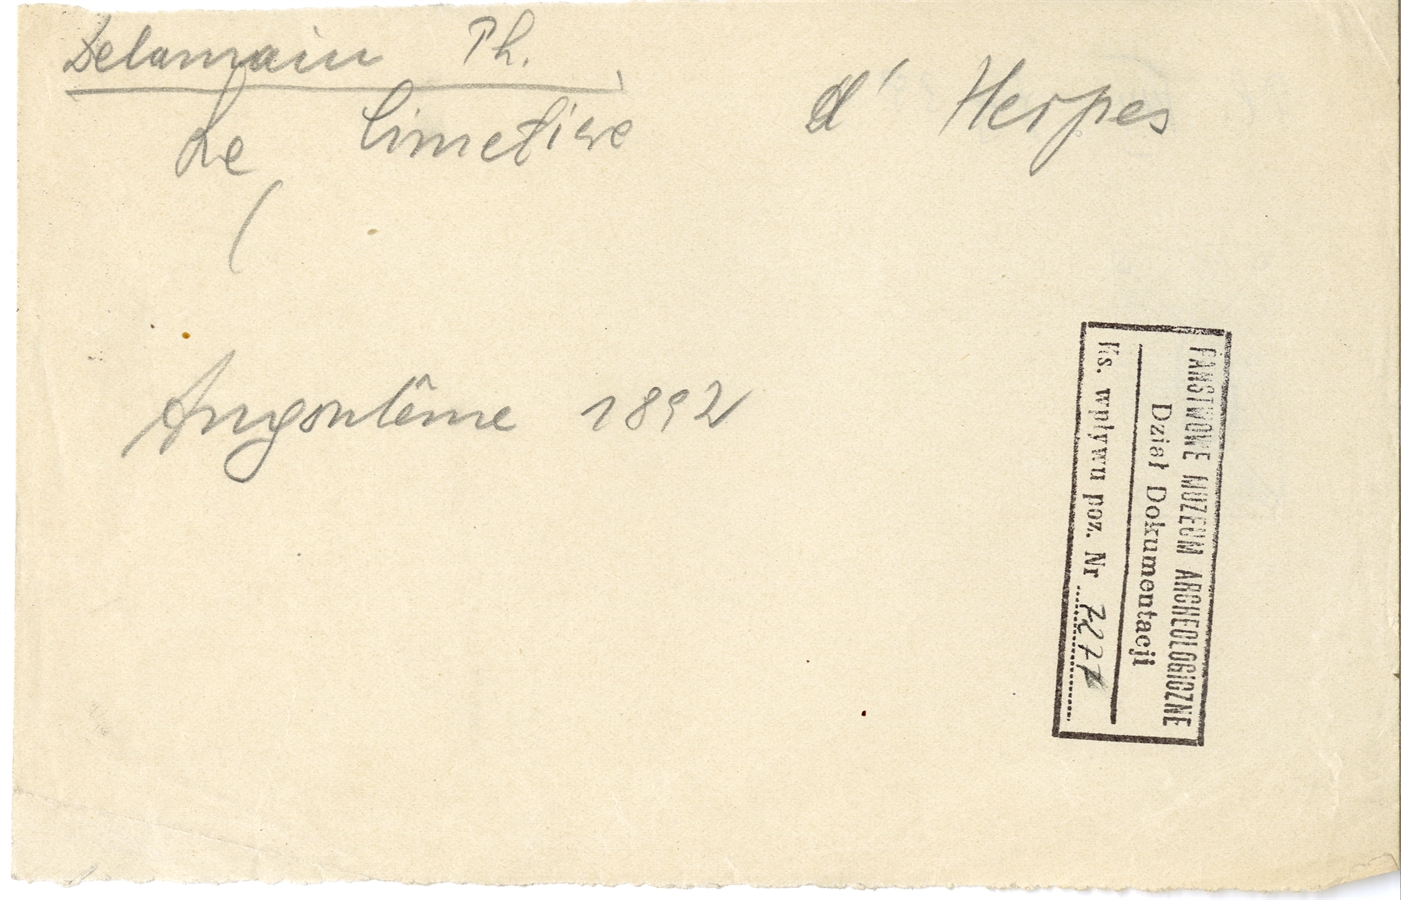 Delamain Ph.
Le Cimetiere d' Herpes
(
Angoulême 1892
PAŃSTWOWE MUZEUM ARCHEOLOGICZNE
Dział Dokumentacji
Ks. wpływu poz. Nr